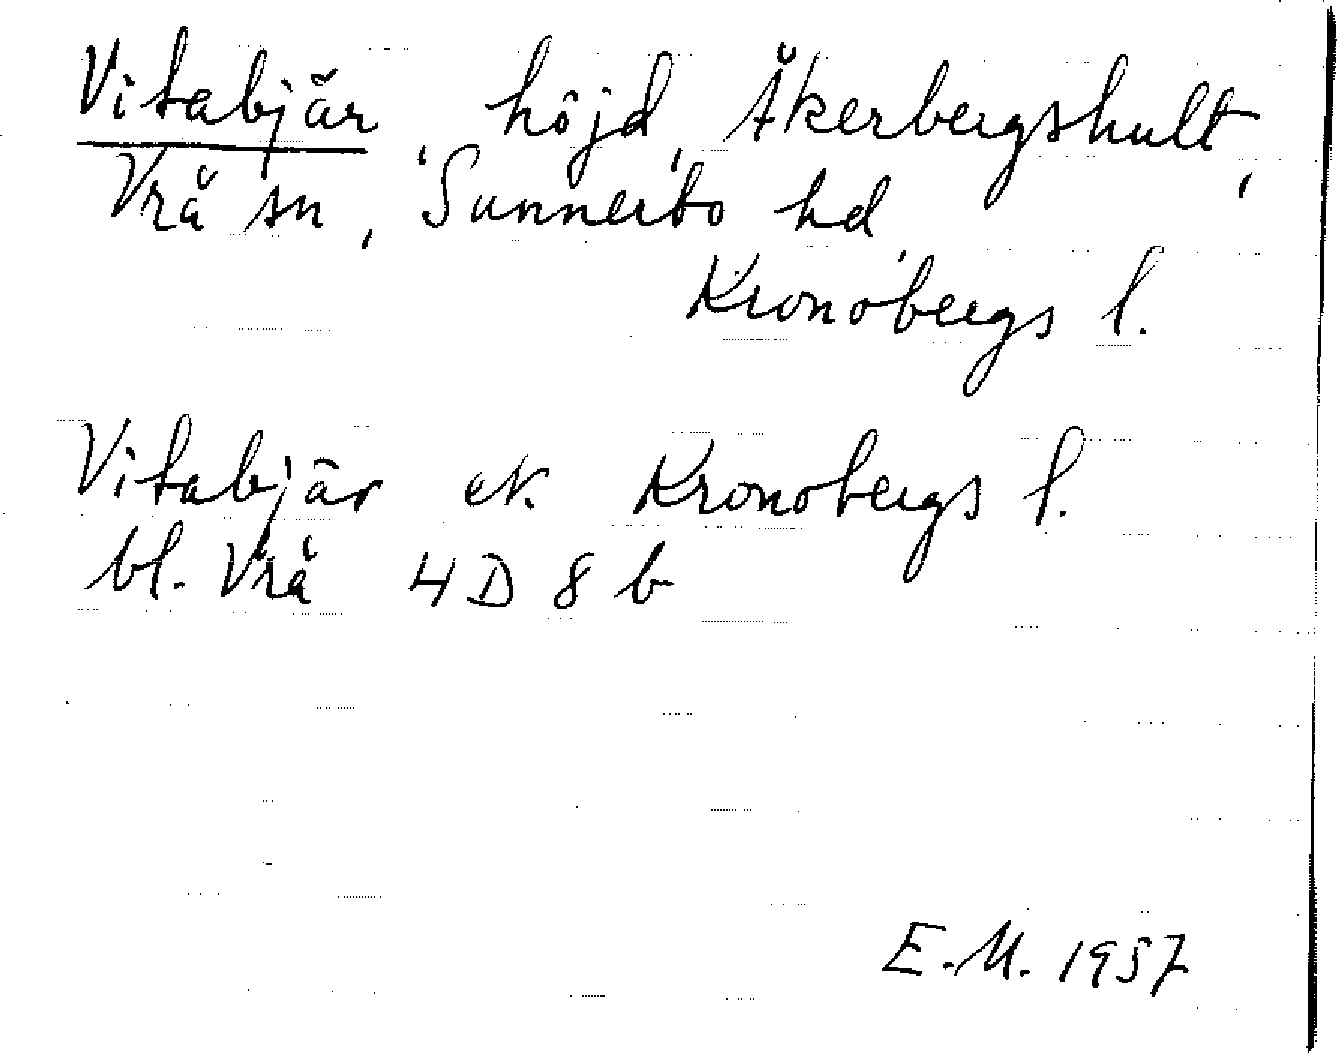 Vitabjär, höjd, Åkerbergshult,
Vrå sn, Sunnerbo hd,
Kronobergs l.
Vitabjär ek. Kronobergs l.
bl. Vrå 4D 8 b
E.M. 1957